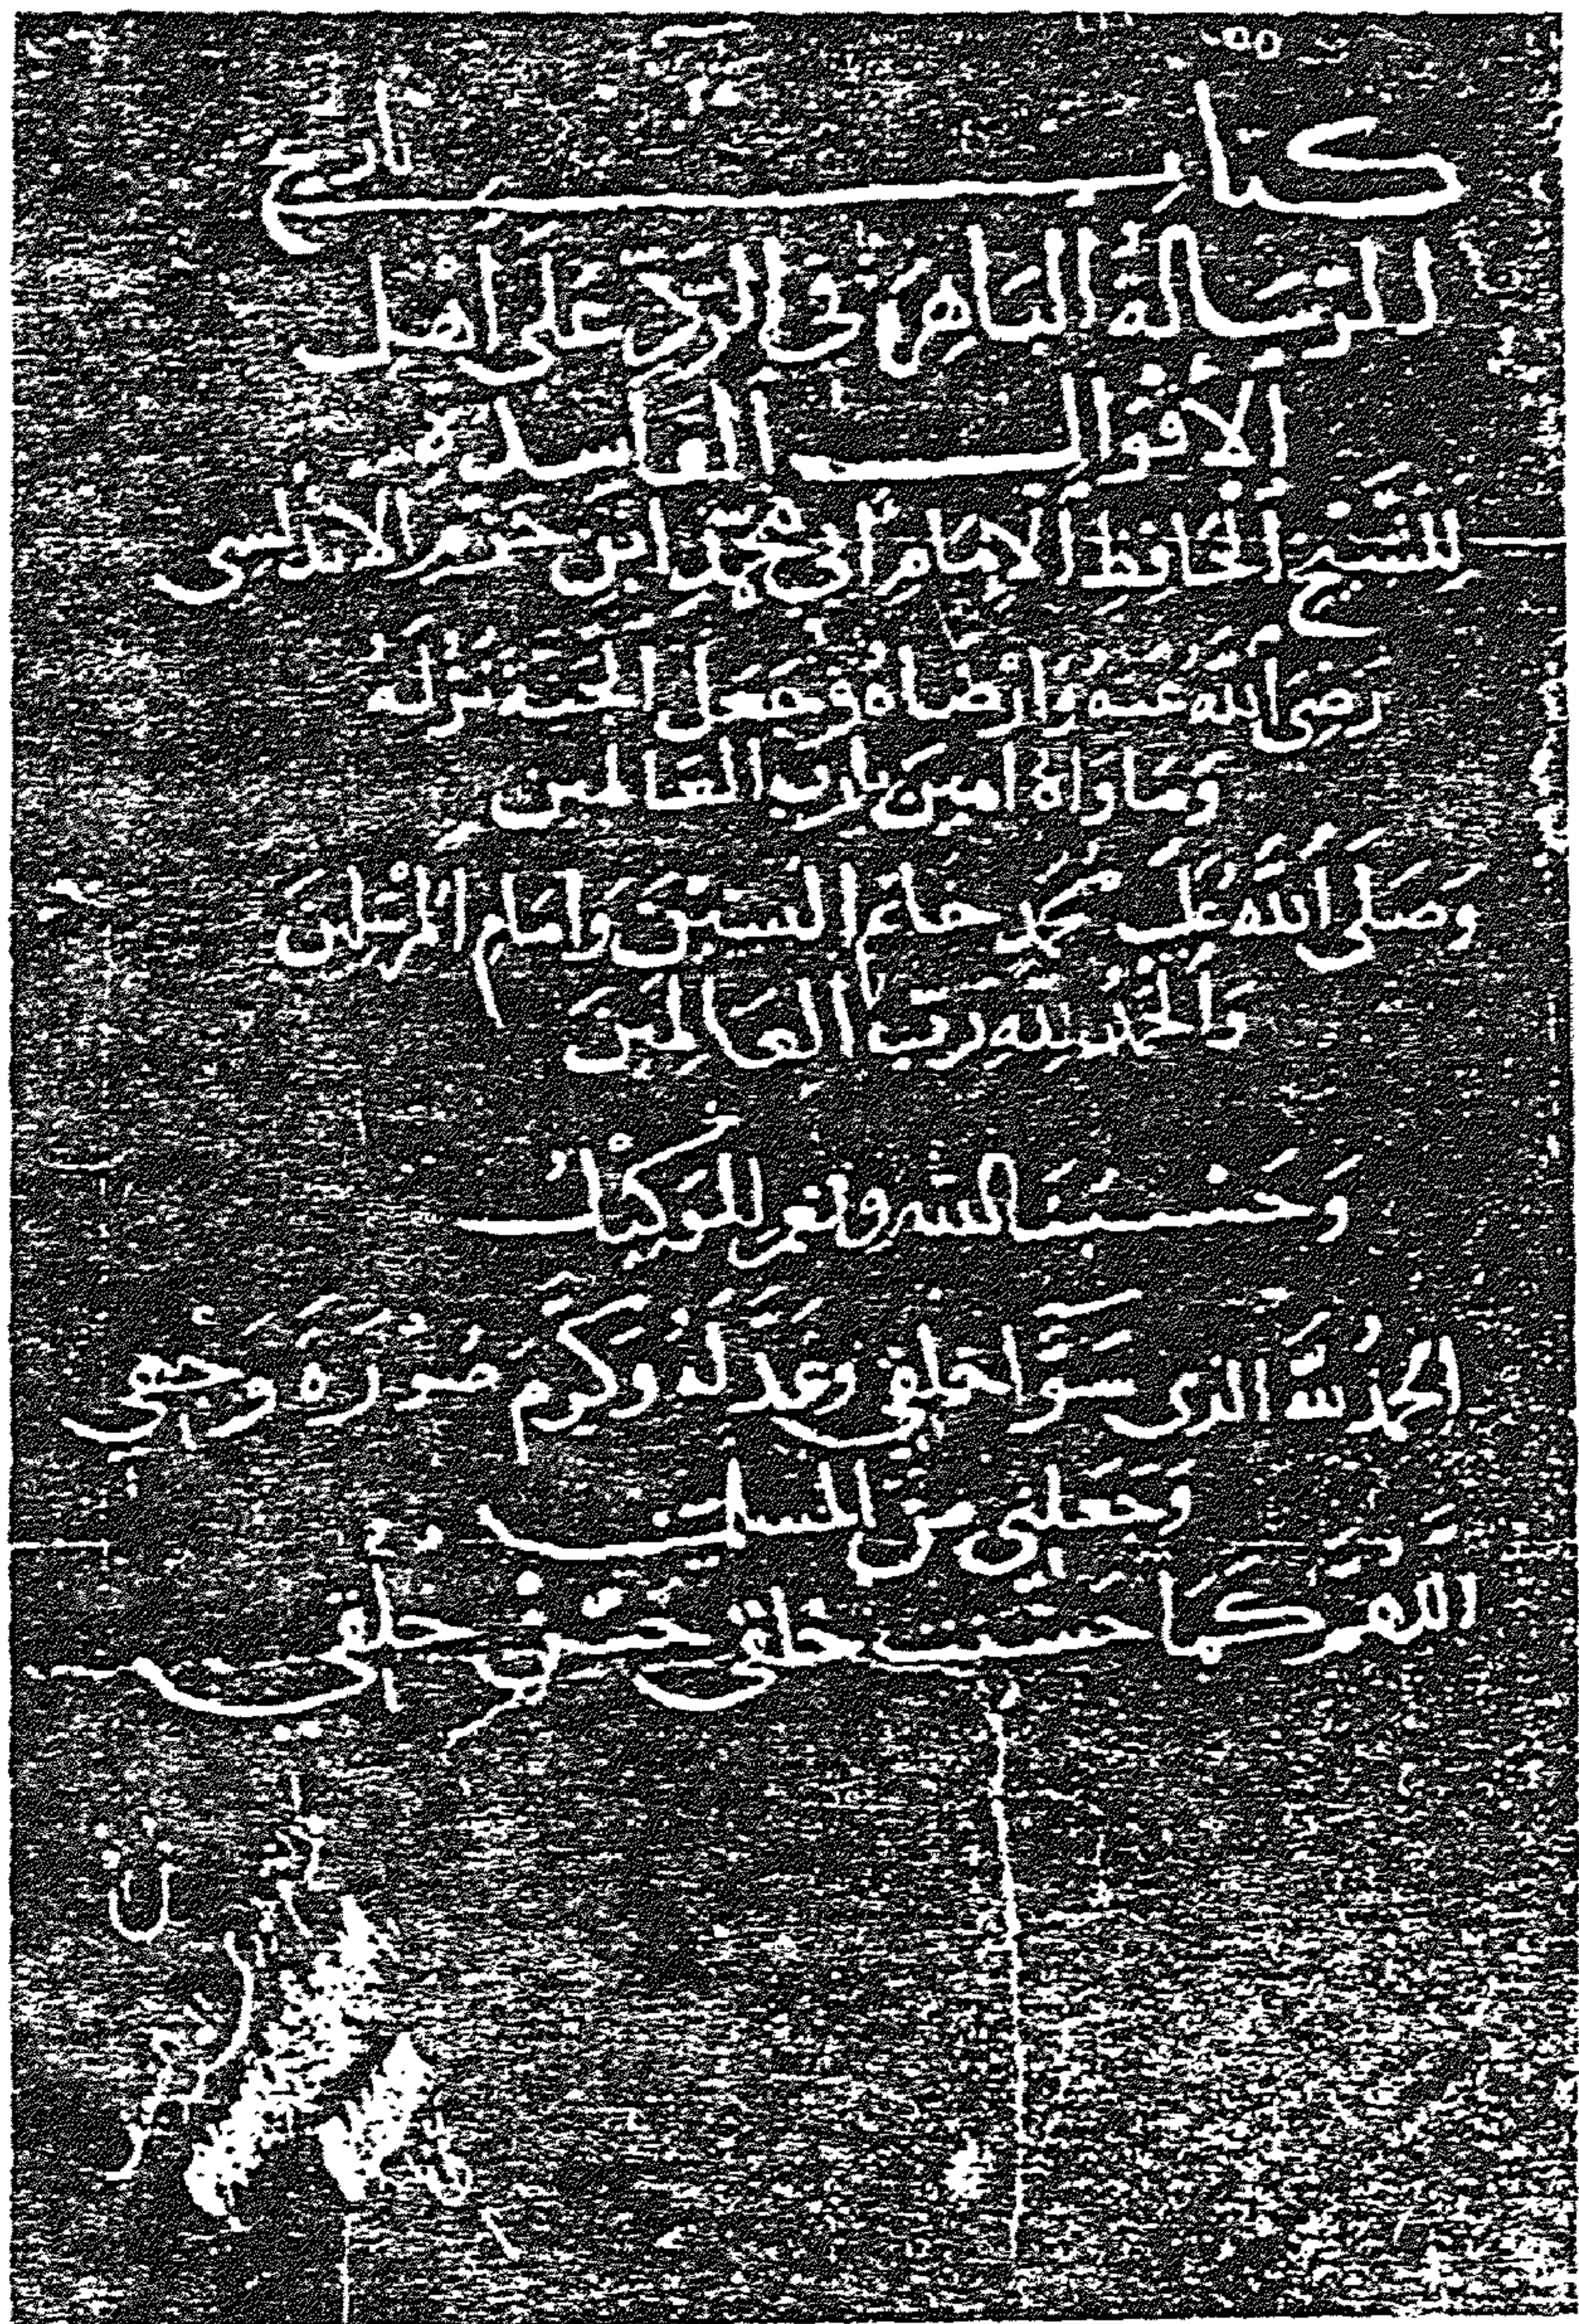 كتاب تاريخ
الرسالة الباهرة في الرد على أهل
الأقوال الفاسدة
للشيخ الحافظ الإمام أبي محمد ابن حزم الاندلسي
رَضِيَ الله عنه وَارْضاه وجعل الجنة نُزُلَهُ
وَمَاوَاهُ امين يارب العالمين
وَصَلى الله على محمد خاتم النبيين وَامام المرسلين
وَالحمد لله رَبّ العَالمين
وَحَسْبنَا الله ونعم الوَكيل
الحمد لله الذى سَوّا خلقي وعَدّلَهُ وكَرّم صُوْرَة وَجهي
وَجَعلني من المسلمين
اللهم كَمَا حسنت خَلقي حَسّن خُلقي